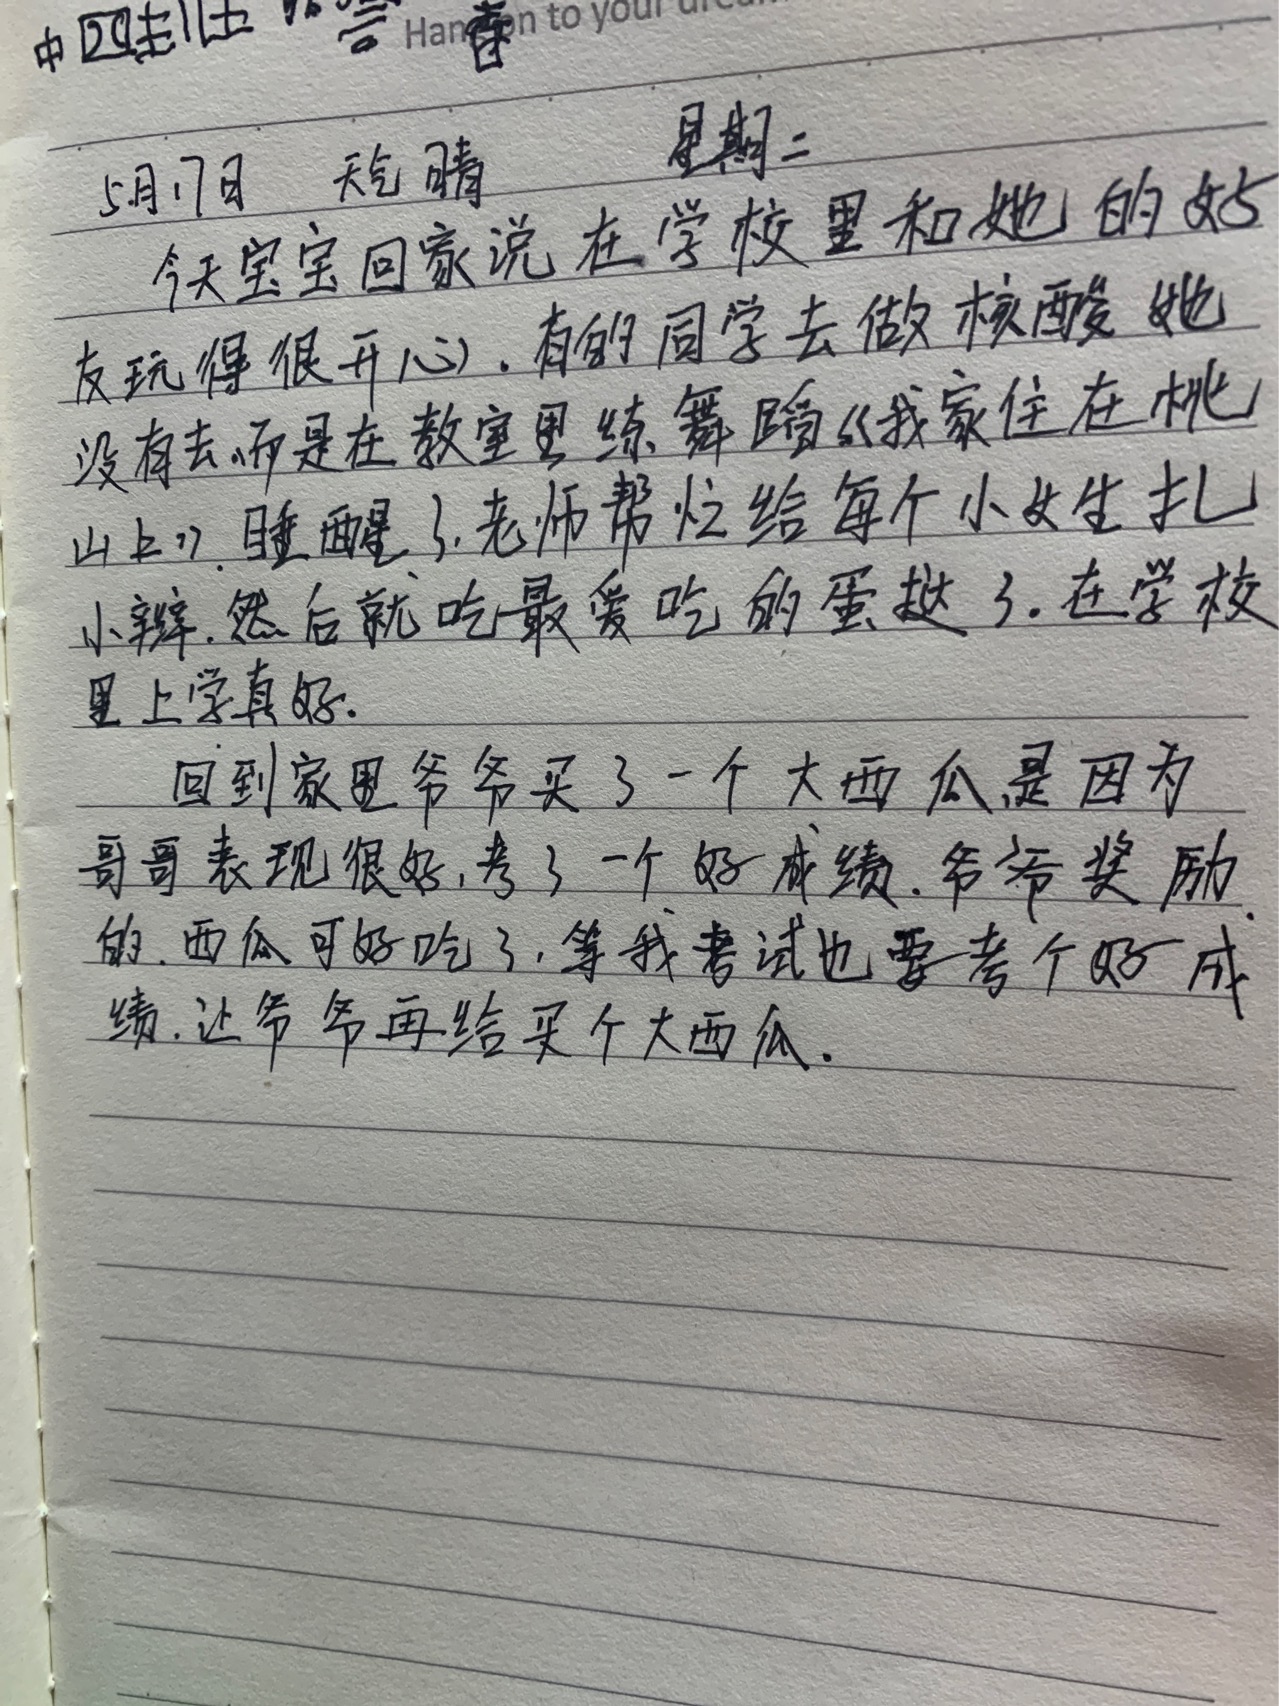 Hang on to your dream
5月17日 天气 晴 星期二
今天宝宝回家说在学校里和她的好
友玩得很开心.有的同学去做核酸她
没有去,而是在教室里练舞蹈《我家住在桃
山上》.睡醒了.老师帮忙给每个小女生扎
小辫.然后就吃最爱吃的蛋挞了.在学校
里上学真好.
回到家里爷爷买了一个大西瓜,是因为
哥哥表现很好,考了一个好成绩.爷爷奖励
的.西瓜可好吃了,等我考试也要考个好成
绩.让爷爷再给买个大西瓜.